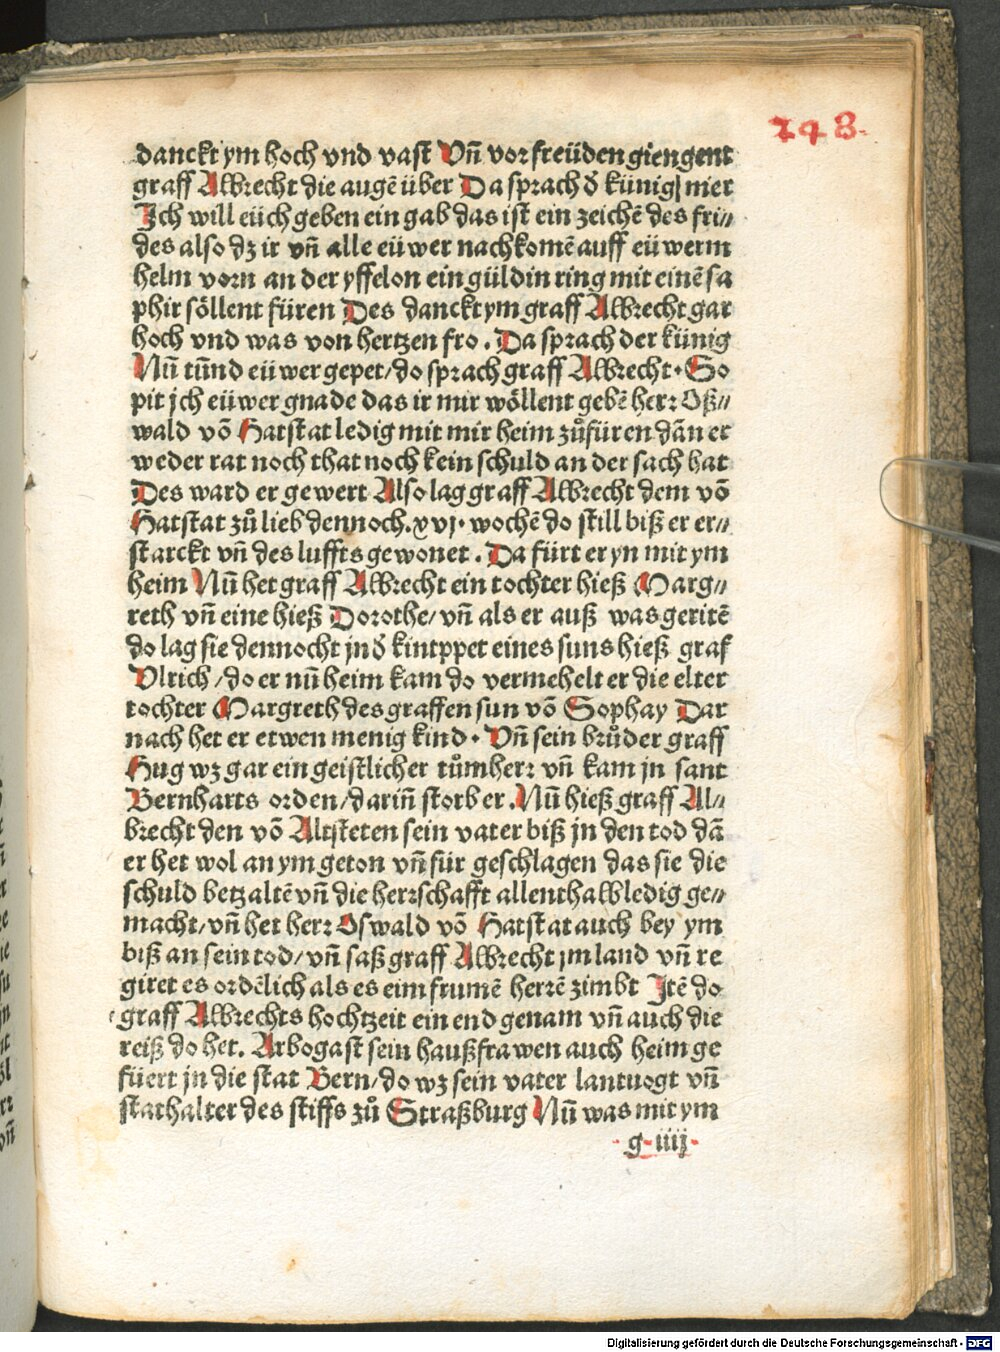 248.
danckt ym hoch vnd vast Vñ vor freüden giengent
graff Albrecht die augē über Da sprach ð künig| nier
Ich will eüch geben ein gab das ist ein zeichē des fri⸗
des also dz ir vñ alle eüwer nachkomē auff eüwerm
helm vorn an der yffelon ein güldin ring mit einē sa
phir söllent füren Des danckt ym graff Albrecht gar
hoch vnd was von hertzen fro . Da sprach der künig
Nū tūnd eüwer gepet/ do sprach graff Albrecht · So
pit jch eüwer gnade das ir mir wöllent gebē herr Oß⸗
wald vō Hatstat ledig mit mir heim zůfüren dān er
weder rat noch that noch kein schuld an der sach hat
Des ward er gewert Also lag graff Albrecht dem vō
Hatstat zů lieb dennoch .xvj· wochē do still biß er er⸗
starckt vñ des luffts gewonet . Da fürt er yn mit ym
heim Nū het graff Albrecht ein tochter hieß Marg⸗
reth vñ eine hieß Dorothe/ vñ als er auß was geritē
do lag sie dennocht jn ð kintppet eines suns hieß graf
Vlrich /do er nū heim kam do vermehelt er die elter
tochter Margreth des graffen sun vō Sophay Dar
nach het er etwen menig kind · Vñ sein brůder graff
Hug wz gar ein geistlicher tůmherr vñ kam jn sant
Bernharts orden/ dariñ storb er .Nū hieß graff Al⸗
brecht den vō Altsteten sein vater biß jn den tod dā
er het wol an ym geton vñ für geschlagen das sie die
schuld betzaltē vñ die herrschafft allenthalb ledig ge⸗
macht/ vñ het herr Oswald vō Hatstat auch bey ym
biß an sein tod/ vñ saß graff Albrecht jm land vñ re
giret es ordēlich als es eim frumē herrē zimbt Itē do
graff Albrechts hochtzeit ein end genam vñ auch die
reiß do het. Arbogast sein haußfrawen auch heim ge
füert jn die stat Bern/ do wz sein vater lantuogt vñ
stathalter des stiffs zů Straßburg Nū was mit ym
g·iiij·
Digitalisierung gefördert durch die Deutsche Forschungsgemeinschaft - DFG